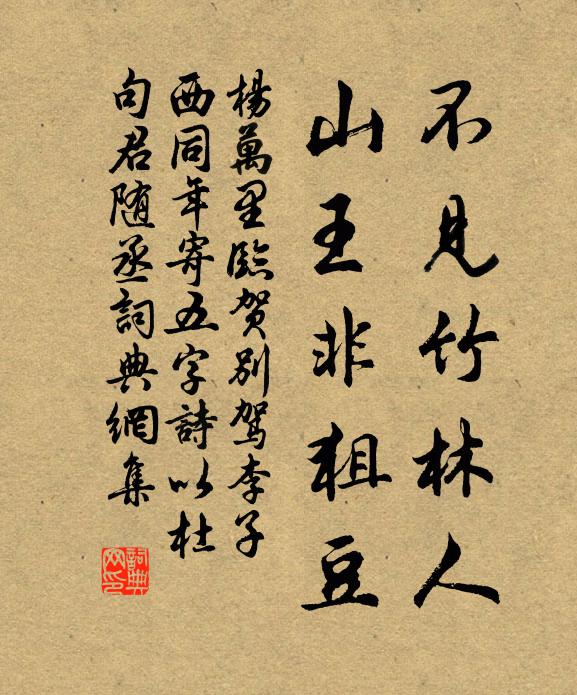 不見竹林人
山王非粗豆
楊萬里臨賀別駕李子
西同年寄五字詩以杜
句君随丞詞典網集
詞典
网印